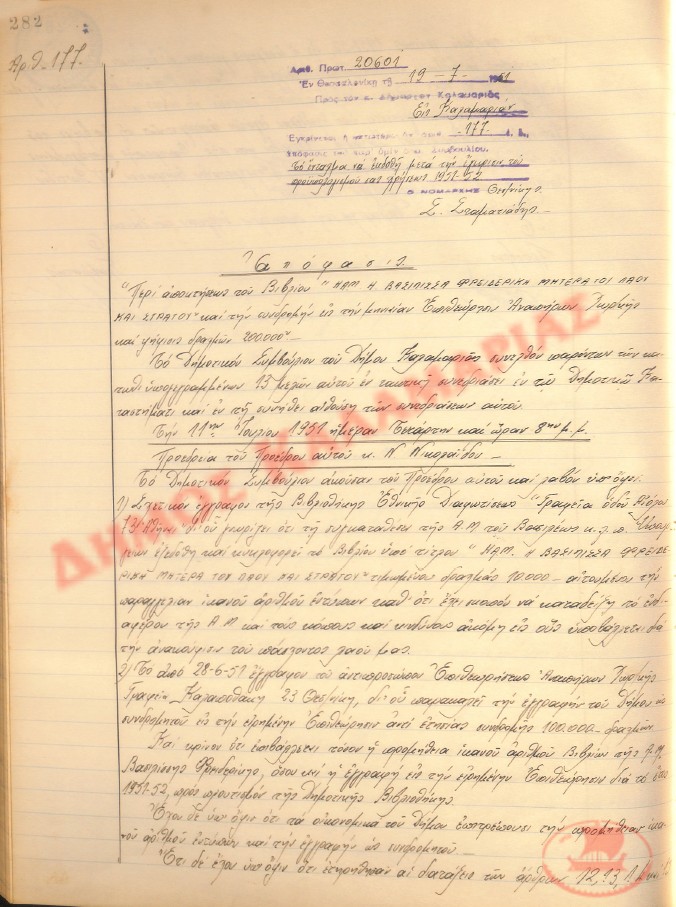 282
Αριθ. 177.
Αριθ. Πρωτ. 20601
Ἐν Θεσσαλονίκῃ τῇ 19 - 7 - 1951
Πρὸς τὸν κ. Δήμαρχον Καλαμαριᾶς
Εἰς Καλαμαριὰν
Ἐγκρίνεται ἡ 177
Τὸ ἔνταλμα νὰ ἐκδοθῇ μετὰ τὴν ἔγκρισιν τοῦ
προϋπολογισμοῦ 1951-52
Ο ΝΟΜΑΡΧΗΣ Θεσ/νίκης
Σ. Σταματιάδης
Ἀπόφασις.
"Περὶ ἀποκτήσεως τοῦ Βιβλίου "Η Α.Μ. Η ΒΑΣΙΛΙΣΣΑ ΦΡΕΙΔΕΡΙΚΗ ΜΗΤΕΡΑ ΤΟΥ ΛΑΟΥ
ΚΑΙ ΣΤΡΑΤΟΥ" καὶ τὴν συνδρομὴν εἰς τὴν μηνιαίαν Ἐπιθεώρησιν Ἀναπήρων Χωρ/κῆς
καὶ ψήφισις δραχμῶν 200.000"
Τὸ Δημοτικὸν Συμβούλιον τοῦ Δήμου Καλαμαριᾶς συνελθὸν παρόντων τῶν κά-
τωθι ὑπογεγραμμένων 13 μελῶν αὐτοῦ ἐν τακτικῇ συνεδριάσει ἐν τῷ Δημοτικῷ Κα-
ταστήματι καὶ ἐν τῇ συνήθει αἰθούσῃ τῶν συνεδριάσεων αὐτοῦ
Τὴν 11ην Ἰουλίου 1951 ἡμέραν Τετάρτην καὶ ὥραν 8ην μ.μ.
Προεδρεία τοῦ Προέδρου αὐτοῦ κ. Ν Νικολαΐδου
Τὸ Δημοτικὸν Συμβούλιον ἀκοῦσαν τοῦ Προέδρου αὐτοῦ καὶ λαβὸν ὑπ' ὄψει:
1) Σχετικὸν ἔγγραφον τῆς Βιβλιοθήκης Ἐθνικῆς Διαφωτίσεως "Γραφεῖα ὁδοῦ
δι' οὗ γνωρίζει ὅτι τῇ συγκαταθέσει τῆς Α.Μ τοῦ Βασιλέως κ.τ.λ.
ἐξεδόθη καὶ κυκλοφορεῖ τὸ Βιβλίον ὑπὸ τίτλον "Η Α.Μ. Η ΒΑΣΙΛΙΣΣΑ ΦΡΕΙΔΕ-
ΡΙΚΗ ΜΗΤΕΡΑ ΤΟΥ ΛΑΟΥ ΚΑΙ ΣΤΡΑΤΟΥ" τιμώμενον δραχμὰς 10.000 αἰτουμένου τὴν
παραγγελίαν ἱκανοῦ ἀριθμοῦ ἐντύπων καθ' ὅτι ἔχει σκοπὸν νὰ καταδείξῃ τὸ ἐνδι-
αφέρον τῆς Α Μ καὶ τοὺς κόπους καὶ κινδύνους ἀκόμη εἰς οὓς ὑποβάλλεται διὰ
τὴν ἀνακούφισιν τοῦ πάσχοντος λαοῦ μας.
2) Τὸ ἀπὸ 28-6-51 ἔγγραφον τοῦ ἀντιπροσώπου Ἐπιθεωρήσεως Ἀναπήρων Χωρ/κῆς
Γραφεῖα 23 Θεσ/νίκη, δι' οὗ παρακαλεῖ τὴν ἐγγραφὴν τοῦ Δήμου ὡς
συνδρομητοῦ εἰς τὴν εἰρημένην Ἐπιθεώρησιν ἀντὶ ἐτησίας συνδρομῆς 100.000 δραχμῶν
Καὶ κρίνον ὅτι ἐπιβάλλεται τόσον ἡ προμήθεια ἱκανοῦ ἀριθμοῦ Βιβλίων τῆς Α.Μ.
Βασιλίσσης Φρειδερίκης, ὅσον καὶ ἡ ἐγγραφὴ εἰς τὴν εἰρημένην Ἐπιθεώρησιν διὰ τὸ ἔτος
1951-52, πρὸς πλουτισμὸν τῆς Δημοτικῆς Βιβλιοθήκης.
Ἔχον δὲ ὑπ' ὄψιν ὅτι τὰ οἰκονομικὰ τοῦ Δήμου ἐπιτρέπουσι τὴν προμήθειαν ἱκα-
νοῦ ἀριθμοῦ ἐντύπων καὶ τὴν ἐγγραφὴν ὡς συνδρομητοῦ
Ἔτι δὲ ἔχον ὑπ' ὄψιν ὅτι ἐτηρήθησαν αἱ διατάξεις τῶν ἄρθρων 12, 13, 1
ΔΗΜΟΣ ΚΑΛΑΜΑΡΙΑΣ